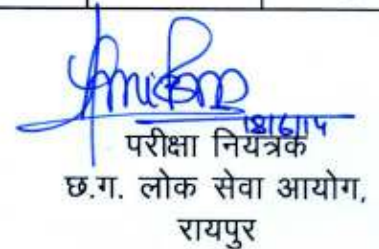 18/6/14
परीक्षा नियंत्रक
छ.ग. लोक सेवा आयोग,
रायपुर